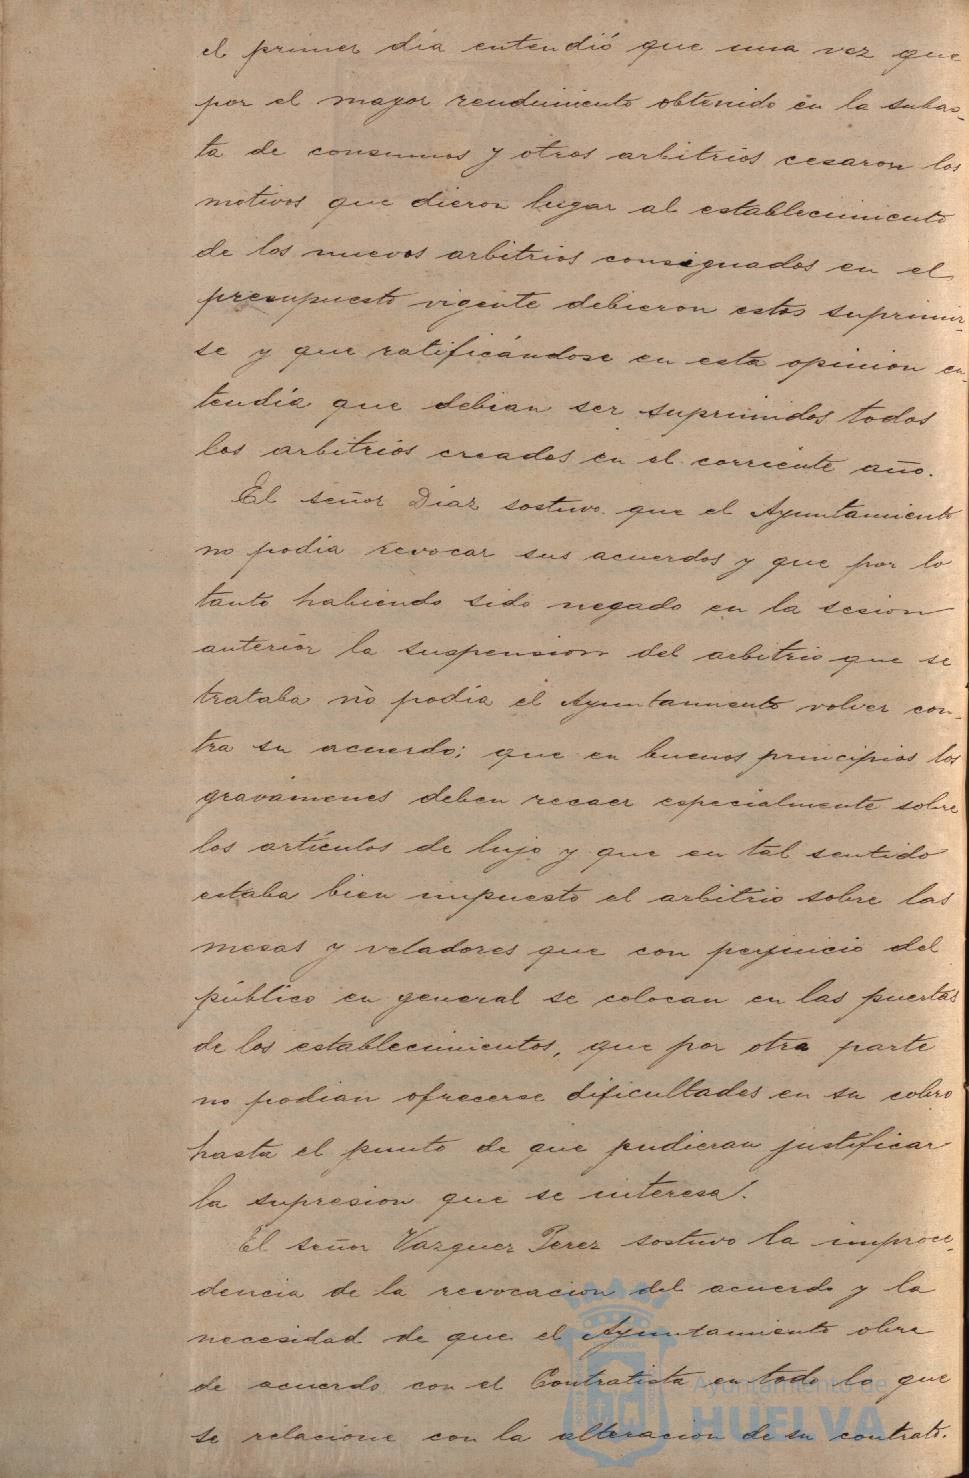 el primer dia entendió que una vez que
por el mayor rendimiento obtenido en la subas-
ta de consumos y otros arbitrios cesaron los
motivos que dieron lugar al establecimiento
de los nuevos arbitrios consignados en el
presupuesto vigente debieron estos suprimir-
se y que ratificándose en esta opinion en-
tendia que debian ser suprimidos todos
los arbitrios creados en el corriente año.
El señor Diaz sostuvo que el Ayuntamiento
no podia revocar sus acuerdos y que por lo
tanto habiendo sido negado en la sesion
anterior la suspension del arbitrio que se
trataba no podia el Ayuntamiento volver con-
tra su acuerdo; que en buenos principios los
gravámenes deben recaer especialmente sobre
los artículos de lujo y que en tal sentido
estaba bien impuesto el arbitrio sobre las
mesas y veladores que con perjuicio del
público en general se colocan en las puertas
de los establecimientos, que por otra parte
no podian ofrecerse dificultades en su cobro
hasta el punto de que pudieran justificar
la supresion que se interesa.
El señor Vazquez Perez sostuvo la improce-
dencia de la revocacion del acuerdo y la
necesidad de que el Ayuntamiento obre
de acuerdo con el Contratista en todo lo que
se relacione con la alteracion de su contrato.
Ayuntamiento de
HUELVA